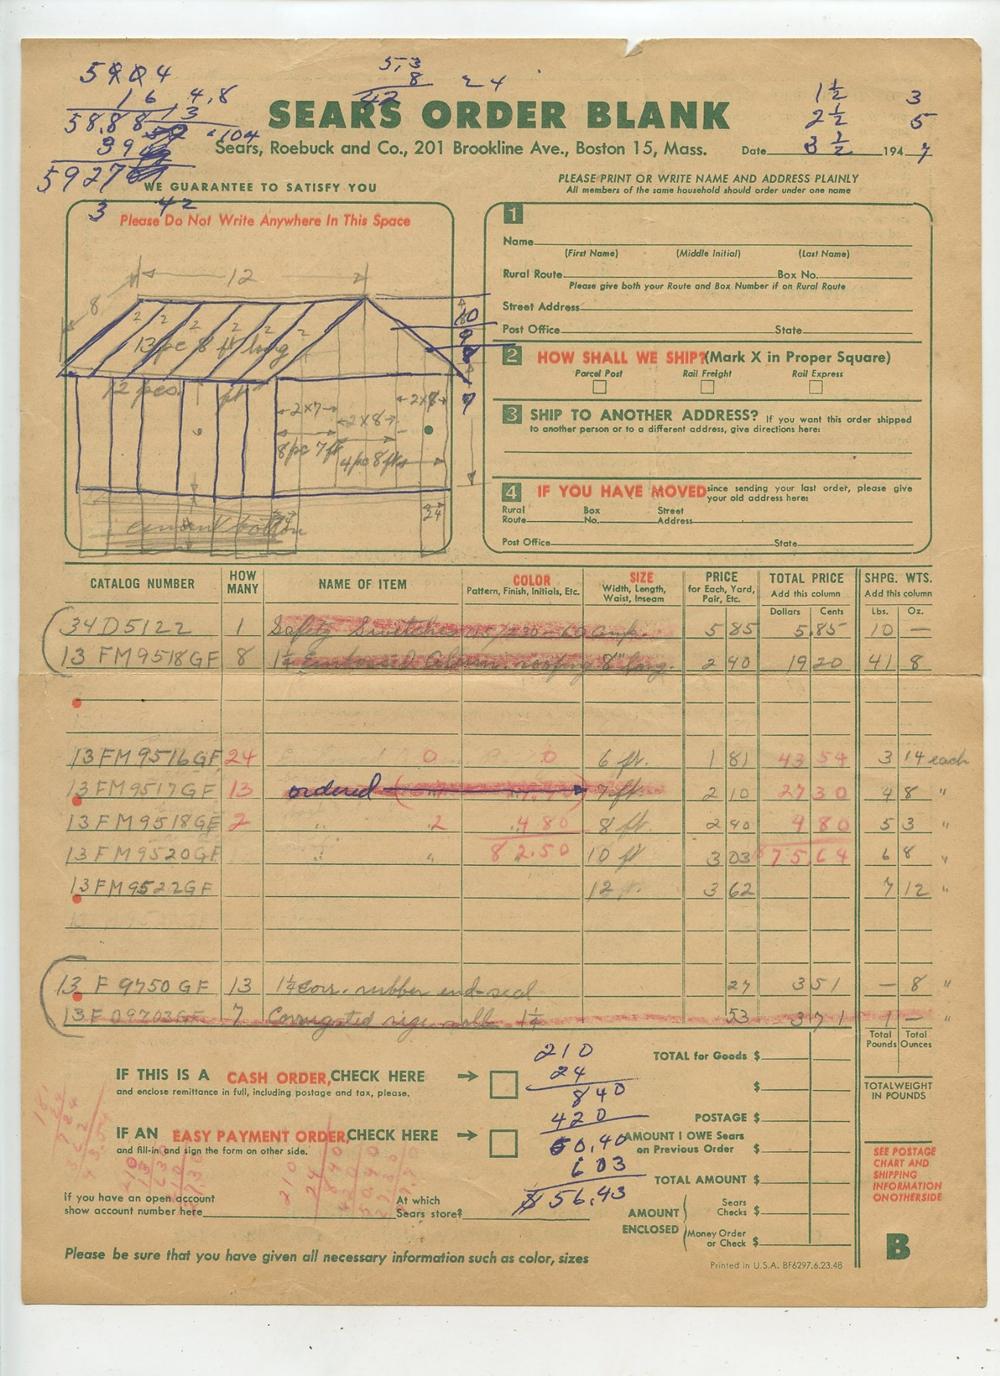 5904
16 4.8
58.88 13
39 .104
5927
3 42
5,3
8
42
24
1 1/2 3
2 1/2 5
3 1/2
SEARS ORDER BLANK
Sears, Roebuck and Co., 201 Brookline Ave., Boston 15, Mass.
Date 194 7
WE GUARANTEE TO SATISFY YOU
Please Do Not Write Anywhere In This Space
12
8
2 2 2 2 2
13 pc 8 ft long
12 pcs. ft
2x7
2x8
2x8
8 pc 7 ft
4 pc 8 ft
10
7
24
cement bottom
PLEASE PRINT OR WRITE NAME AND ADDRESS PLAINLY
All members of the same household should order under one name
1
Name
(First Name) (Middle Initial) (Last Name)
Rural Route Box No.
Please give both your Route and Box Number if on Rural Route
Street Address
Post Office State
2 HOW SHALL WE SHIP? (Mark X in Proper Square)
Parcel Post Rail Freight Rail Express
3 SHIP TO ANOTHER ADDRESS? If you want this order shipped
to another person or to a different address, give directions here:
4 IF YOU HAVE MOVED since sending your last order, please give
your old address here:
Rural Route Box No. Street Address
Post Office State
CATALOG NUMBER HOW MANY NAME OF ITEM COLOR Pattern, Finish, Initials, Etc. SIZE Width, Length, Waist, Inseam PRICE for Each, Yard, Pair, Etc. TOTAL PRICE Add this column SHPG. WTS. Add this column
Dollars Cents Lbs. Oz.
34D5122 1 Safety Switches 30-60 Amp. 5 85 5.85 10 —
13 FM9518GF 8 1¼ Embossed Alum. roofing 8" long. 2 40 19 20 41 8
13FM9516GF 24 0 0 6 ft. 1 81 43 54 3 14 each
13FM9517GF 13 ordered 7 ft. 2 10 27 30 4 8 "
13FM9518GF 2 " 2 4 80 8 ft. 2 40 4 80 5 3 "
13FM9520GF " " 82.50 10 ft 3 03 75,64 6 8 "
13FM9522GF 12 ft. 3 62 7 12 "
13 F 9750 GF 13 1¼ corr. rubber end-seal 27 3 51 — 8 "
13F09703GF 7 Corrugated rige roll 1¼ 53 3 71 1 — "
Total Pounds Total Ounces
IF THIS IS A CASH ORDER, CHECK HERE
and enclose remittance in full, including postage and tax, please.
IF AN EASY PAYMENT ORDER, CHECK HERE
and fill-in and sign the form on other side.
If you have an open account
show account number here
At which
Sears store?
210
24
840
420
50,40
603
$56,43
TOTAL for Goods $
$
POSTAGE $
AMOUNT I OWE Sears
on Previous Order $
TOTAL AMOUNT $
AMOUNT ENCLOSED
Sears Checks $
Money Order or Check $
TOTAL WEIGHT
IN POUNDS
SEE POSTAGE
CHART AND
SHIPPING
INFORMATION
ON OTHER SIDE
B
Please be sure that you have given all necessary information such as color, sizes
Printed in U.S.A. BF6297.6.23.48